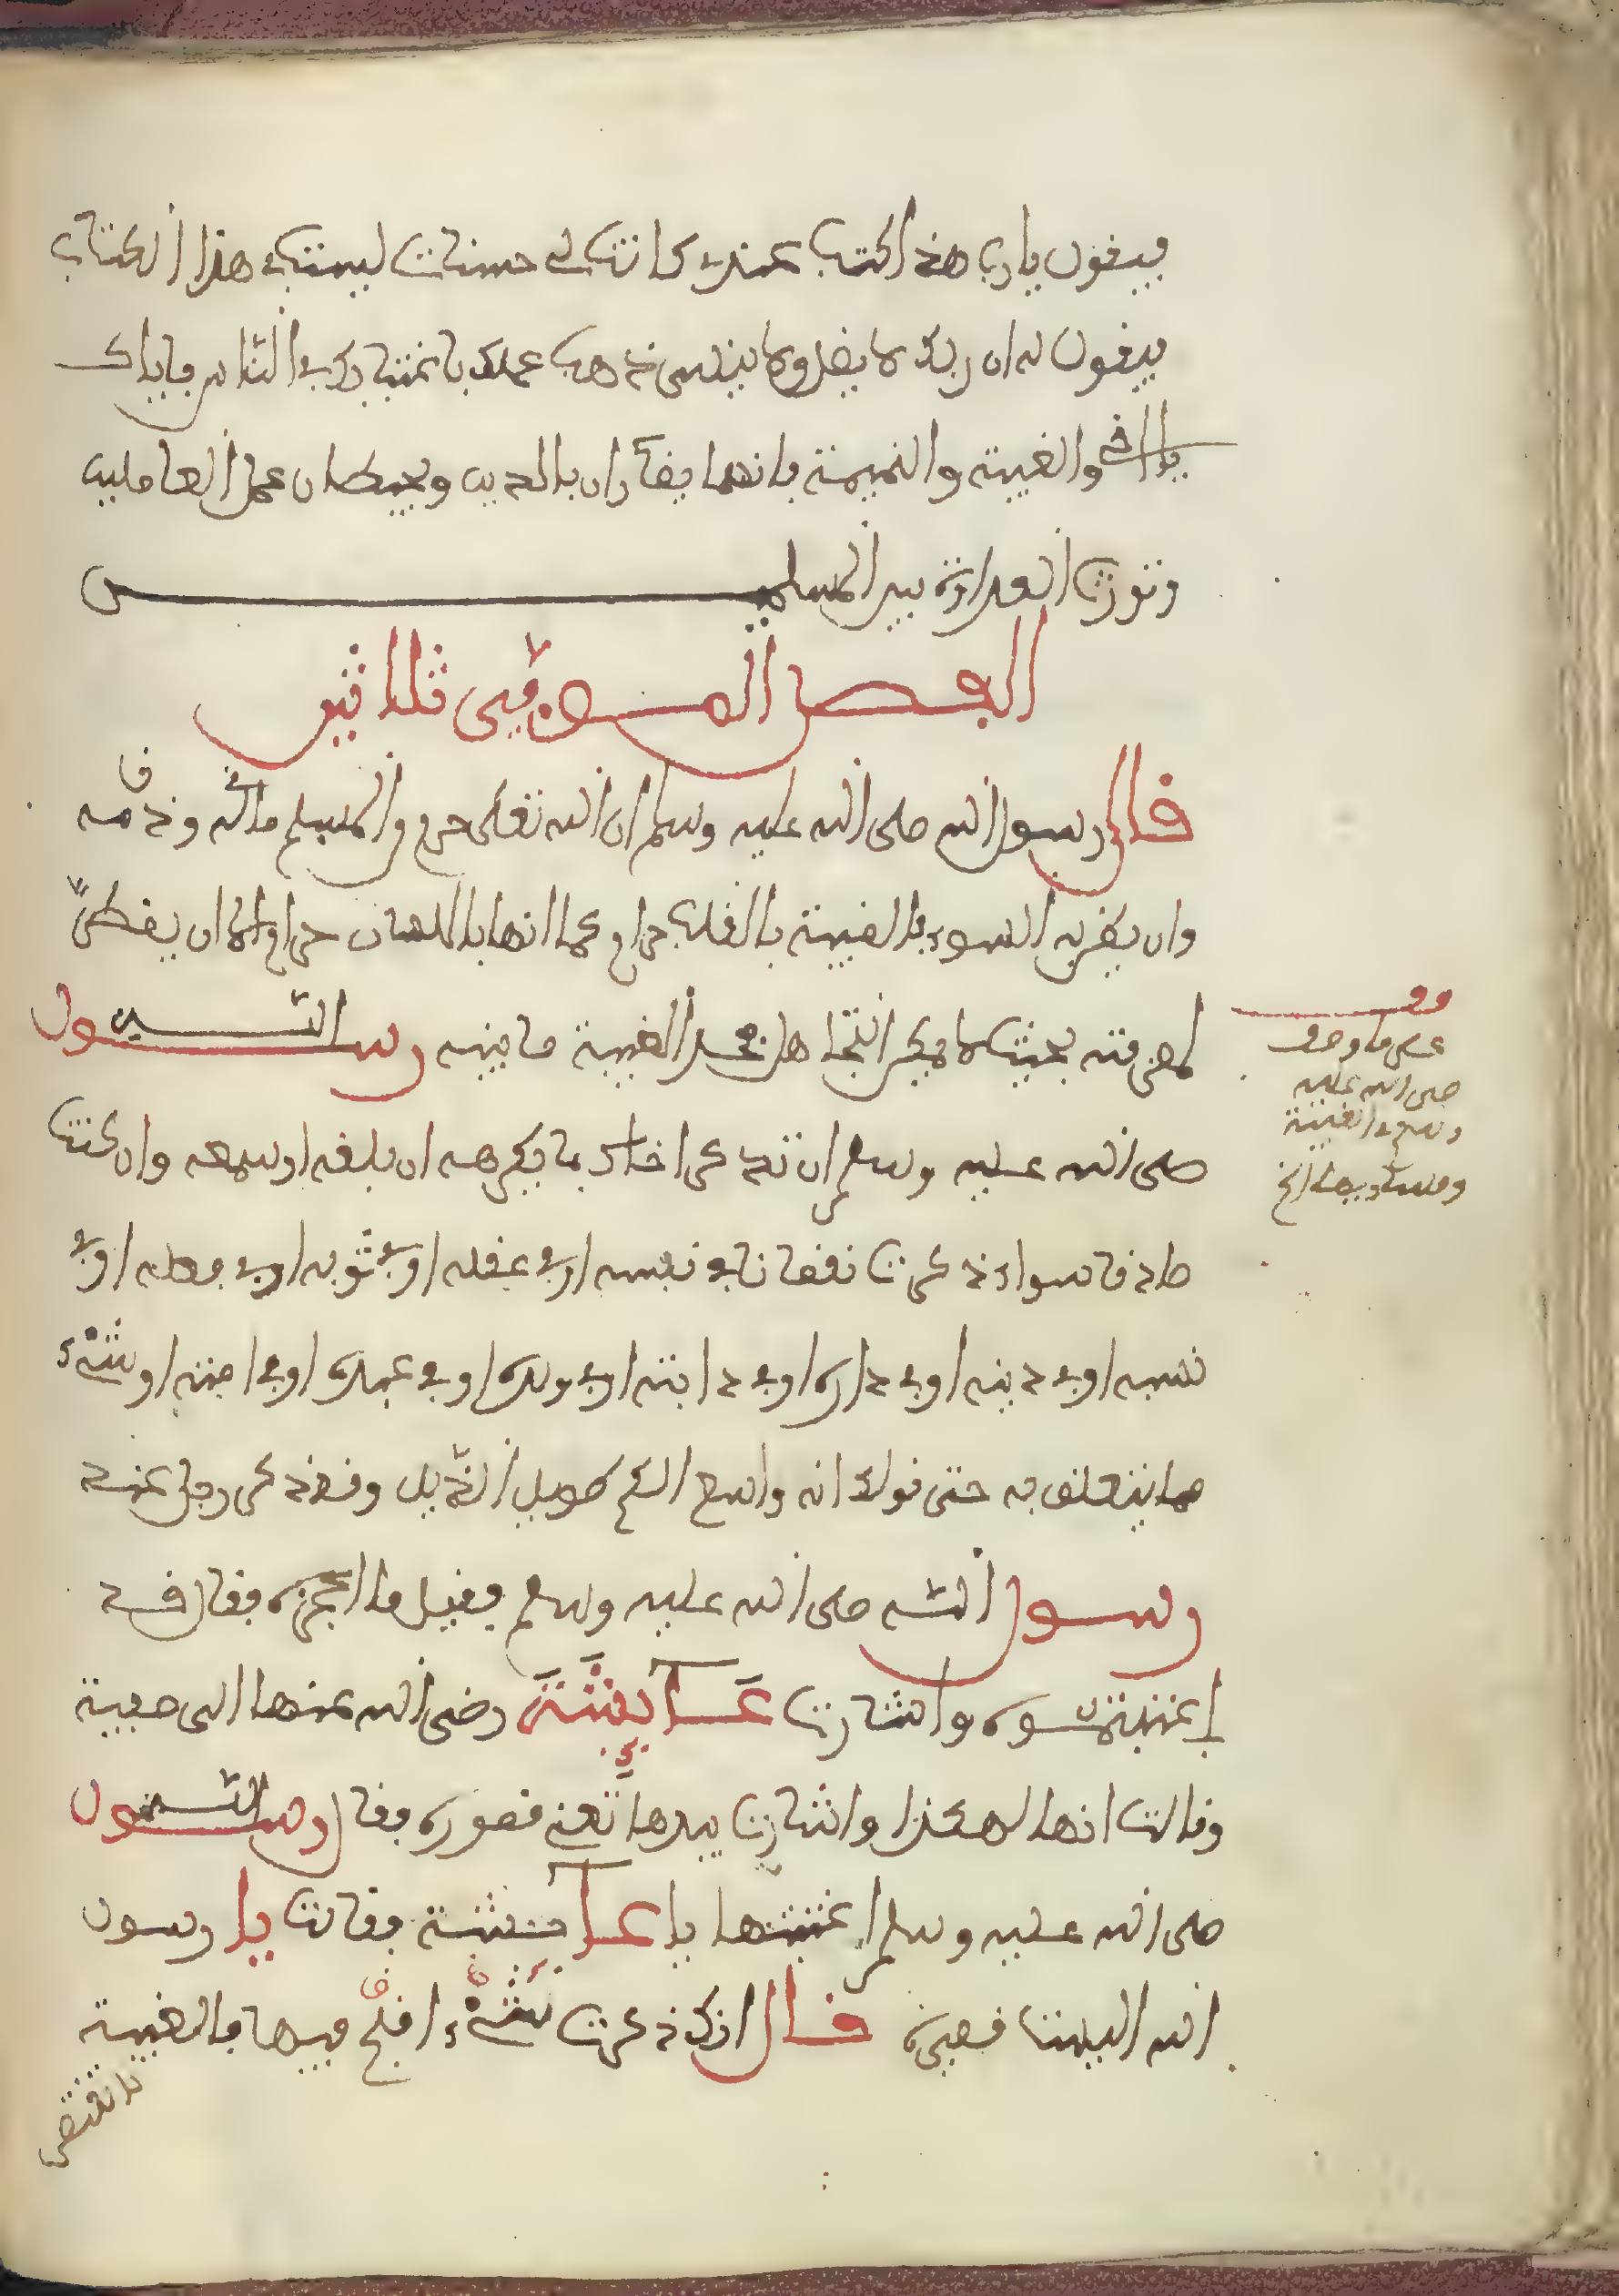 فيقول يا رب هذا الكتب عندي كانت لي حسنات ليست في هذا الكتاب
فيقول له ان ربك لا يضل ولا ينسى ذهب عملك باغتيابك في الناس فإياك
يا اخي والغيبة والنميمة فانهما يضران بالدين ويحبطان عمل العاملين
وتورث العداوة بين المسلمين
الفصل الموفي ثلاثين
قال رسول الله صلى الله عليه وسلم ان الله تعلى حرم من المسلم ماله ودمه
وان يظن به السوء فالغيبة بالقلب حرام كما انها باللسان حرام الا ان يضطر
لمعرفته بحيث لا يمكن التجاهل وحد الغيبة ما بينه رسول الله
صلى الله عليه وسلم ان تذكر اخاك بما يكرهه ان بلغه او سمعه وان كنت
صادقا سواء ذكرت نقصانا في نفسه او في عقله او في ثوبه او في فعله او في
نسبه او في دينه او في داره او في دابته او في ولده او في عبده او في امته او شيء
مما يتعلق به حتى قولك انه واسع الكم طويل الذيل وقد ذكر رجل عند
رسول الله صلى الله عليه وسلم فقيل ما اعجزه فقال قد
اغتبتموه واشارت عائشة رضي الله عنها الى صفية
وقالت انها لهكذا واشارت بيدها تعني قصيرة فقال رسول الله
صلى الله عليه وسلم اغتبتها يا عائشة فقالت يا رسول
الله اليست قصيرة قال انك ذكرت شيء اقبح فيها فالغيبة
تقتضي
قف
على ما وصف
صلى الله عليه
وسلم في الغيبة